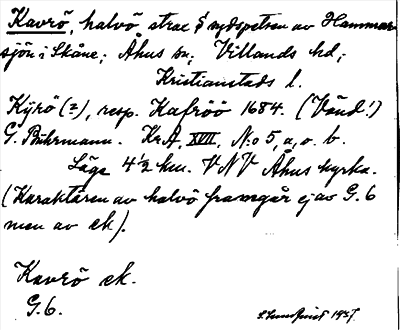 Kavrö, halvö strax å sydspetsen av Hammar-
sjön i Skåne; Åhus sn; Villands hd;
Kristianstads l.
Kÿrö (?), resp. Kafröö 1684. (Vänd!)
G. Buhrmann. Kr.A, XVII, N:o 5, a, o. b.
Läge 4½ km. VNV Åhus kyrka.
(Karaktären av halvö framgår ej av G.6
men av ek).
Kavrö ek.
G.6.
E Lundquist 1927.